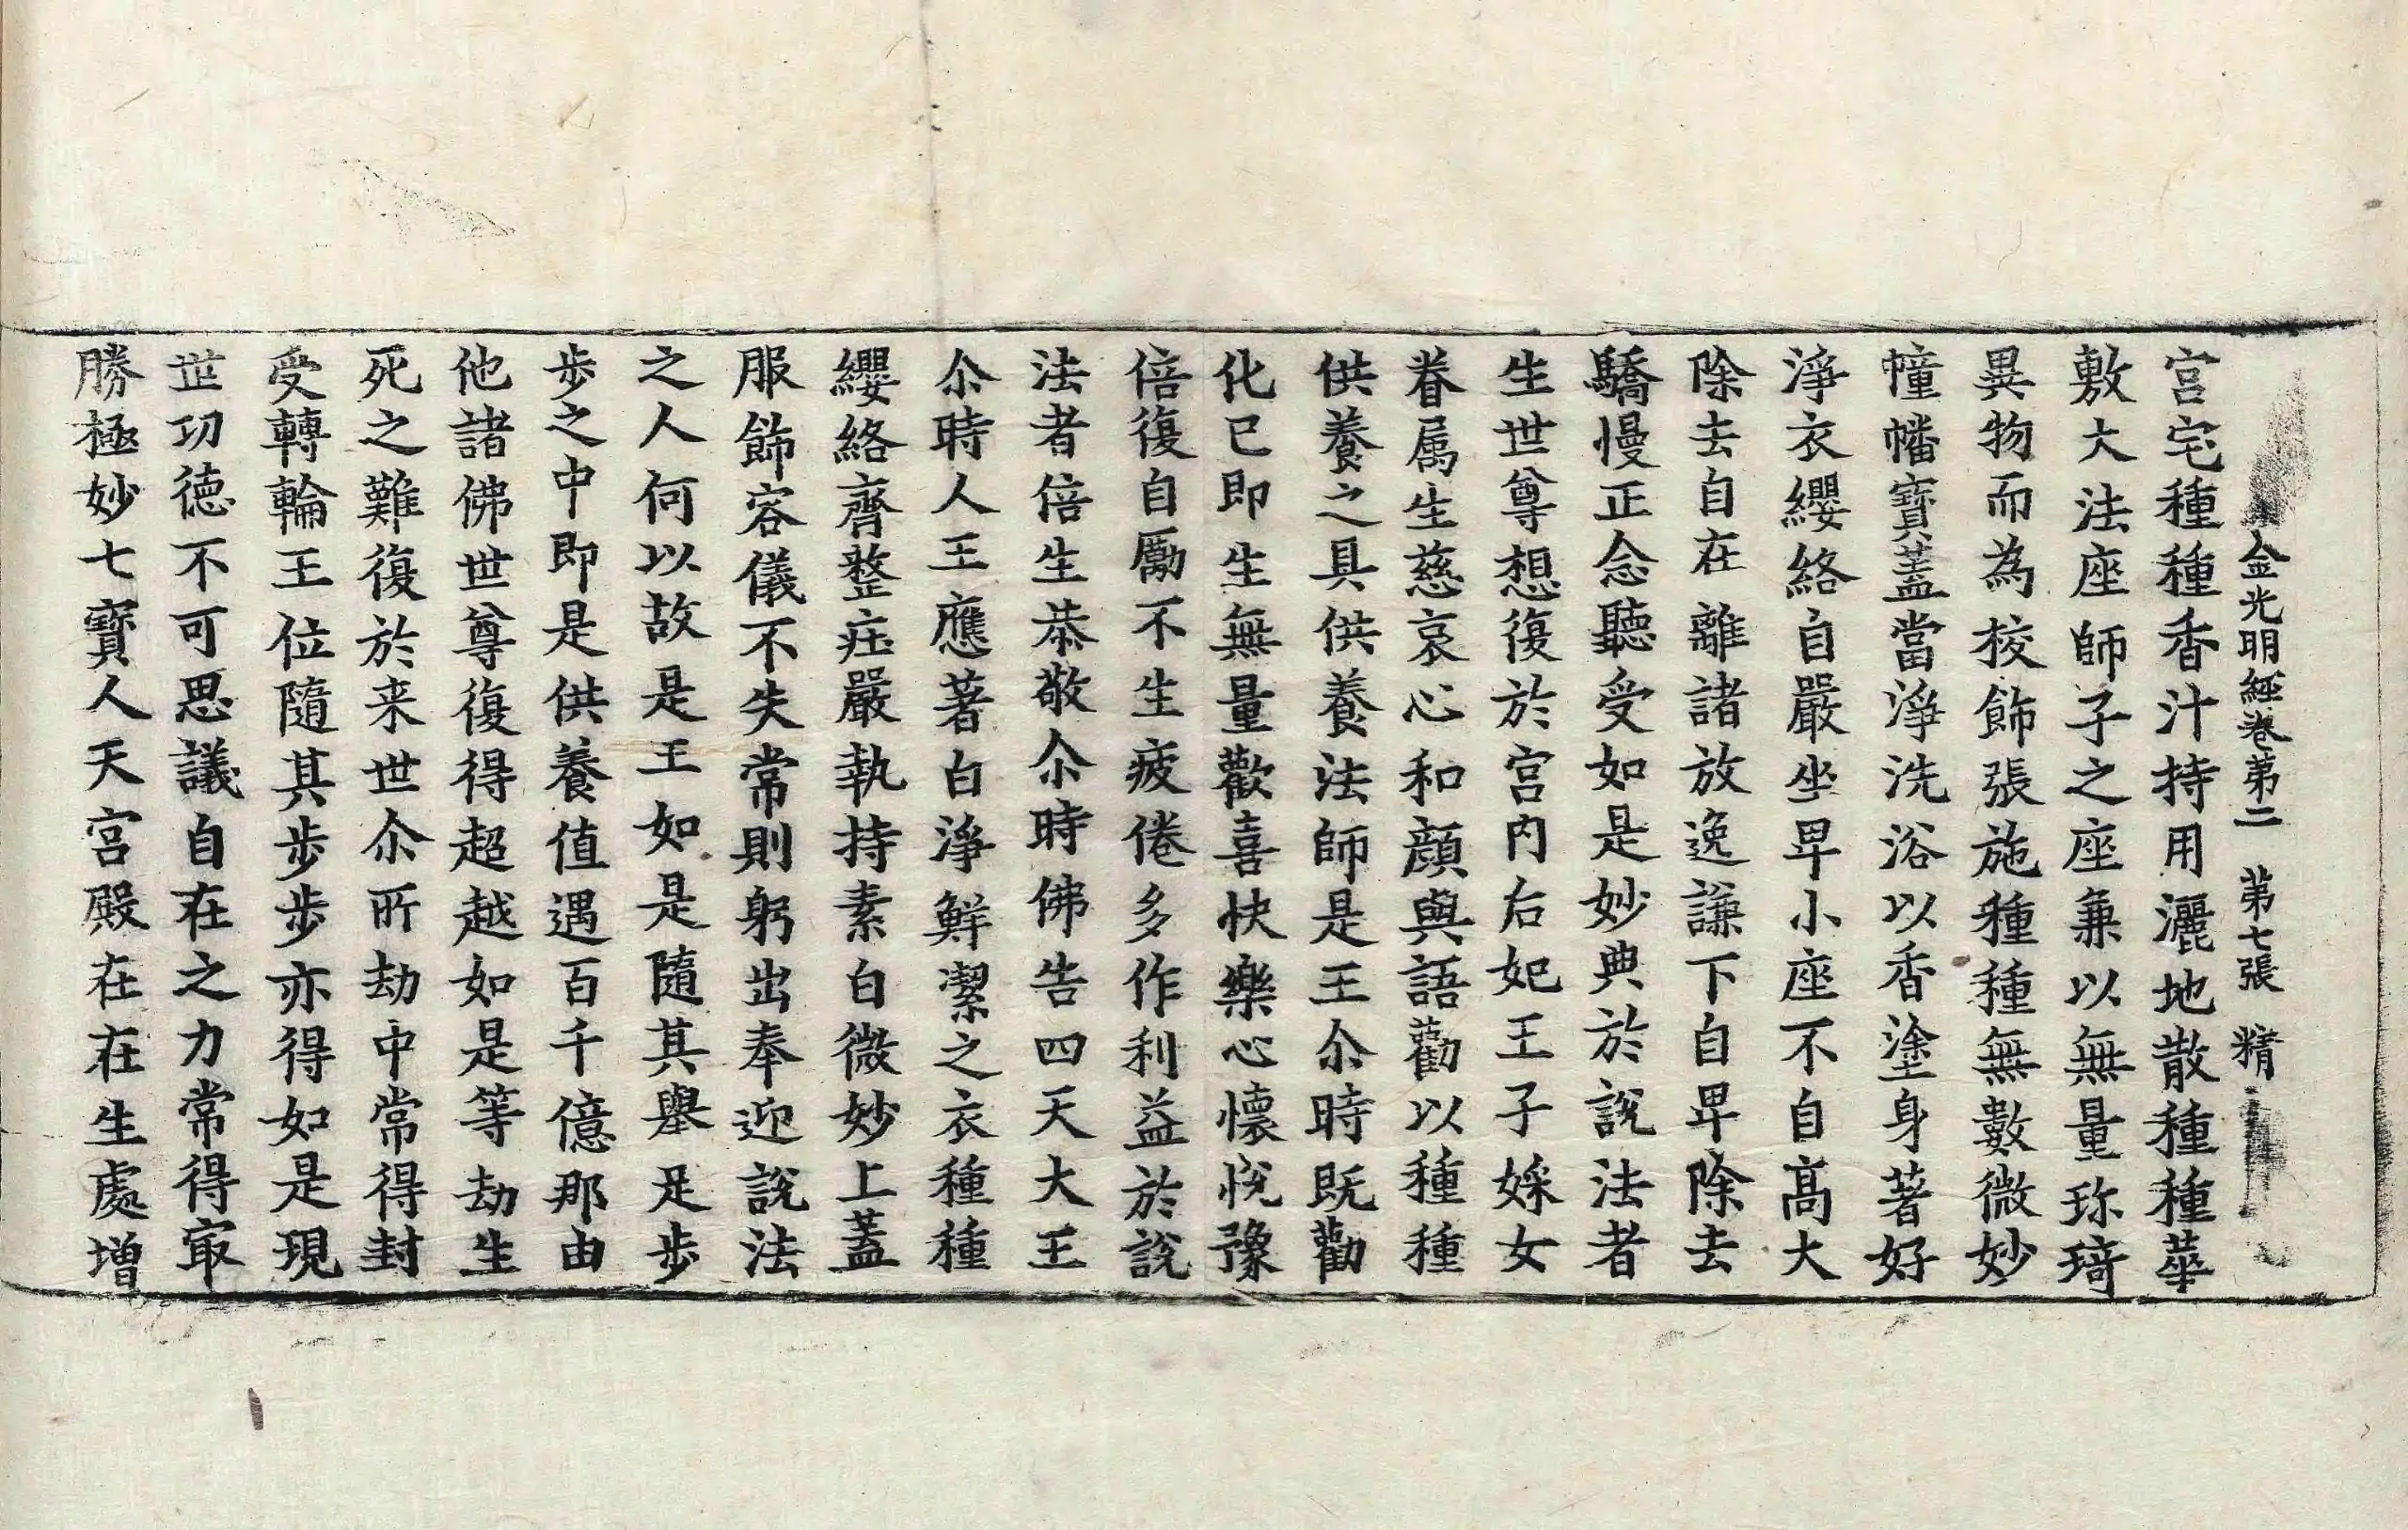 金光明經卷第二　第七張　精
宮宅種種香汁持用灑地散種種華
敷大法座師子之座兼以無量珎琦
異物而為校飾張施種種無數微妙
幢幡寶蓋當淨洗浴以香塗身著好
淨衣纓絡自嚴坐卑小座不自高大
除去自在離諸放逸謙下自卑除去
驕慢正念聽受如是妙典於說法者
生世尊想復於宮内后妃王子婇女
眷属生慈哀心和顔與語勸以種種
供養之具供養法師是王尒時既勸
化已即生無量歡喜快樂心懷悅豫
倍復自勵不生疲倦多作利益於說
法者倍生恭敬尒時佛告四天大王
尒時人王應著白淨鮮潔之衣種種
纓絡齊整庄嚴執持素白微妙上蓋
服飾容儀不失常則躬出奉迎說法
之人何以故是王如是隨其舉足步
步之中即是供養值遇百千億那由
他諸佛世尊復得超越如是等劫生
死之難復於来世尒所劫中常得封
受轉輪王位隨其步步亦得如是現
世功德不可思議自在之力常得冣
勝極妙七寶人天宮殿在在生處增